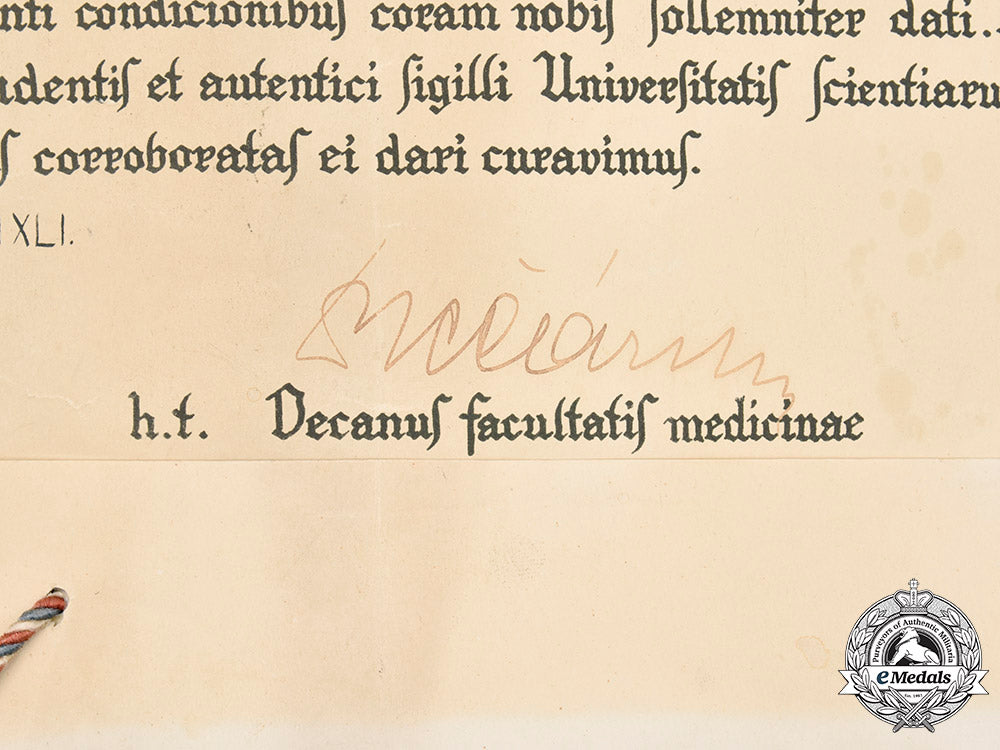 condicionibuſ coram nobiſ ſollemniter dati..
et autentici ſigilli Univerſitatiſ
corroborataſ ei dari curavimuſ.
XLI.
h.t. Decanuſ facultatiſ medicinae
Purveyors of Authentic Militaria
eMedals